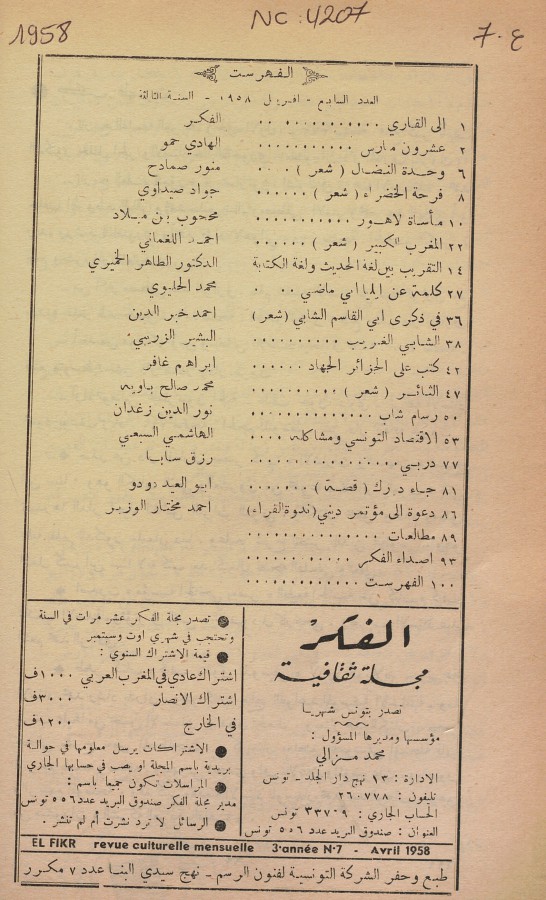 NC : 4207
1958
7.ع
الفهرست
العدد السابع - افريل ١٩٥٨ - السنة الثالثة
١ الى القاري ............ الفكر
٢ عشرون مارس ............ الهادي حمو
٦ وحدة النضال ( شعر ) .... منور صمادح
٨ فرحة الخضراء ( شعر ) ...... جواد صيداوي
١٠ مأساة لاهور ............ محجوب بن ميلاد
٢٢ المغرب الكبير ( شعر ) ...... احمد اللغماني
١٤ التقريب بين لغة الحديث ولغة الكتابة الدكتور الطاهر الخميري
٢٧ كلمة عن ايليا ابي ماضي .. . . محمد الحليوي
٣٦ في ذكرى ابي القاسم الشابي (شعر) احمد خير الدين
٣٨ الشابي الغريب ............ البشير الزريبي
٤٢ كتب على الجزائر الجهاد ...... ابراهم غافر
٤٧ الثائر ( شعر ) .......... محمد صالح باويه
٥٠ رسام شاب ............ نور الدين زغدان
٥٣ الاقتصاد التونسي ومشاكله .... الهاشمي السبعي
٧٧ دربي ............... رزق سابا
٨١ جاء درك ( قصة ) ........ ابو العيد دودو
٨٦ دعوة الى مؤتمر ديني (ندوة القراء) احمد مختار الوزير
٨٩ مطالعات ..............
٩٣ اصداء الفكر ............
١٠٠ الفهرست ............
الفكر
مجلة ثقافية
تصدر بتونس شهريا
مؤسسها ومديرها المسؤول :
محمد مزالي
الادارة : ١٣ نهج دار الجلد - تونس
تليفون : ٢٦٠٧٧٨
الحساب الجاري : ٣٣٧٠٩ تونس
العنوان : صندوق البريد عدد ٥٥٦ تونس
● تصدر مجلة الفكر عشر مرات في السنة
وتحتجب في شهري اوت وسبتمبر
● قيمة الاشتراك السنوي :
اشتراك عادي في المغرب العربي ١٠٠٠ف
اشتراك الانصار ٣٠٠٠ف
في الخارج ١٢٠٠ف
● الاشتراكات يرسل معلومها في حوالة
بريدية باسم المجلة او يصب في حسابها الجاري
● المراسلات تكون جميعا باسم :
مدير مجلة الفكر صندوق البريد عدد ٥٥٦ تونس
● الرسائل لا ترد نشرت أم لم تنشر .
EL FIKR revue culturelle mensuelle 3e année N°7 - Avril 1958
طبع وحفر الشركة التونسية لفنون الرسم - نهج سيدي البنا عدد ٧ مكرر